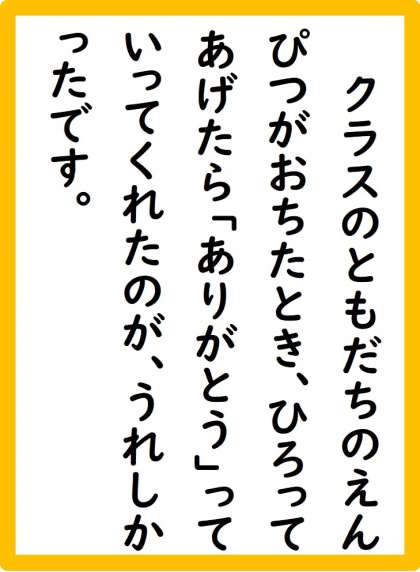 クラスのともだちのえん
ぴつがおちたとき、ひろって
あげたら「ありがとう」って
いってくれたのが、うれしか
ったです。